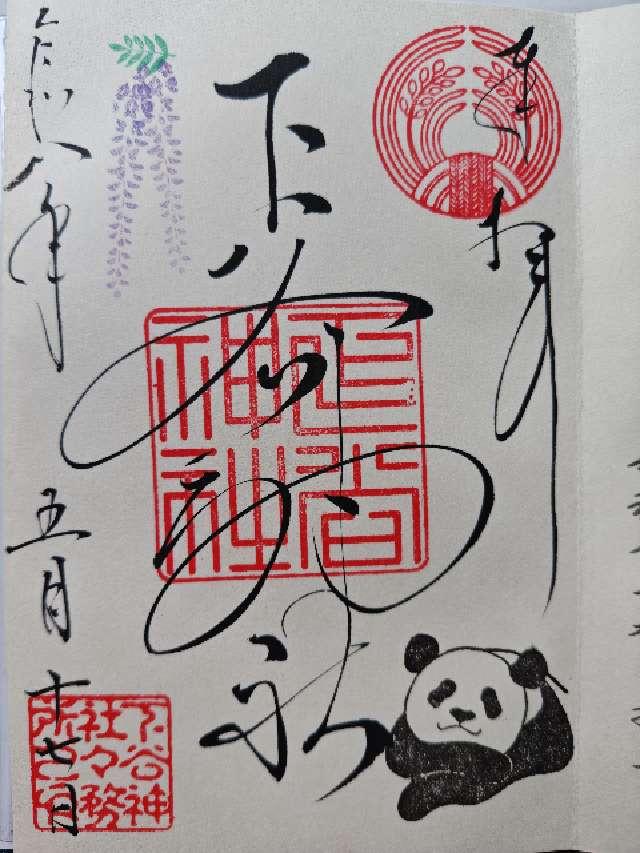 奉拝
下谷神社
令和八年五月十七日
下谷
神社
下谷神
社々務
所之印